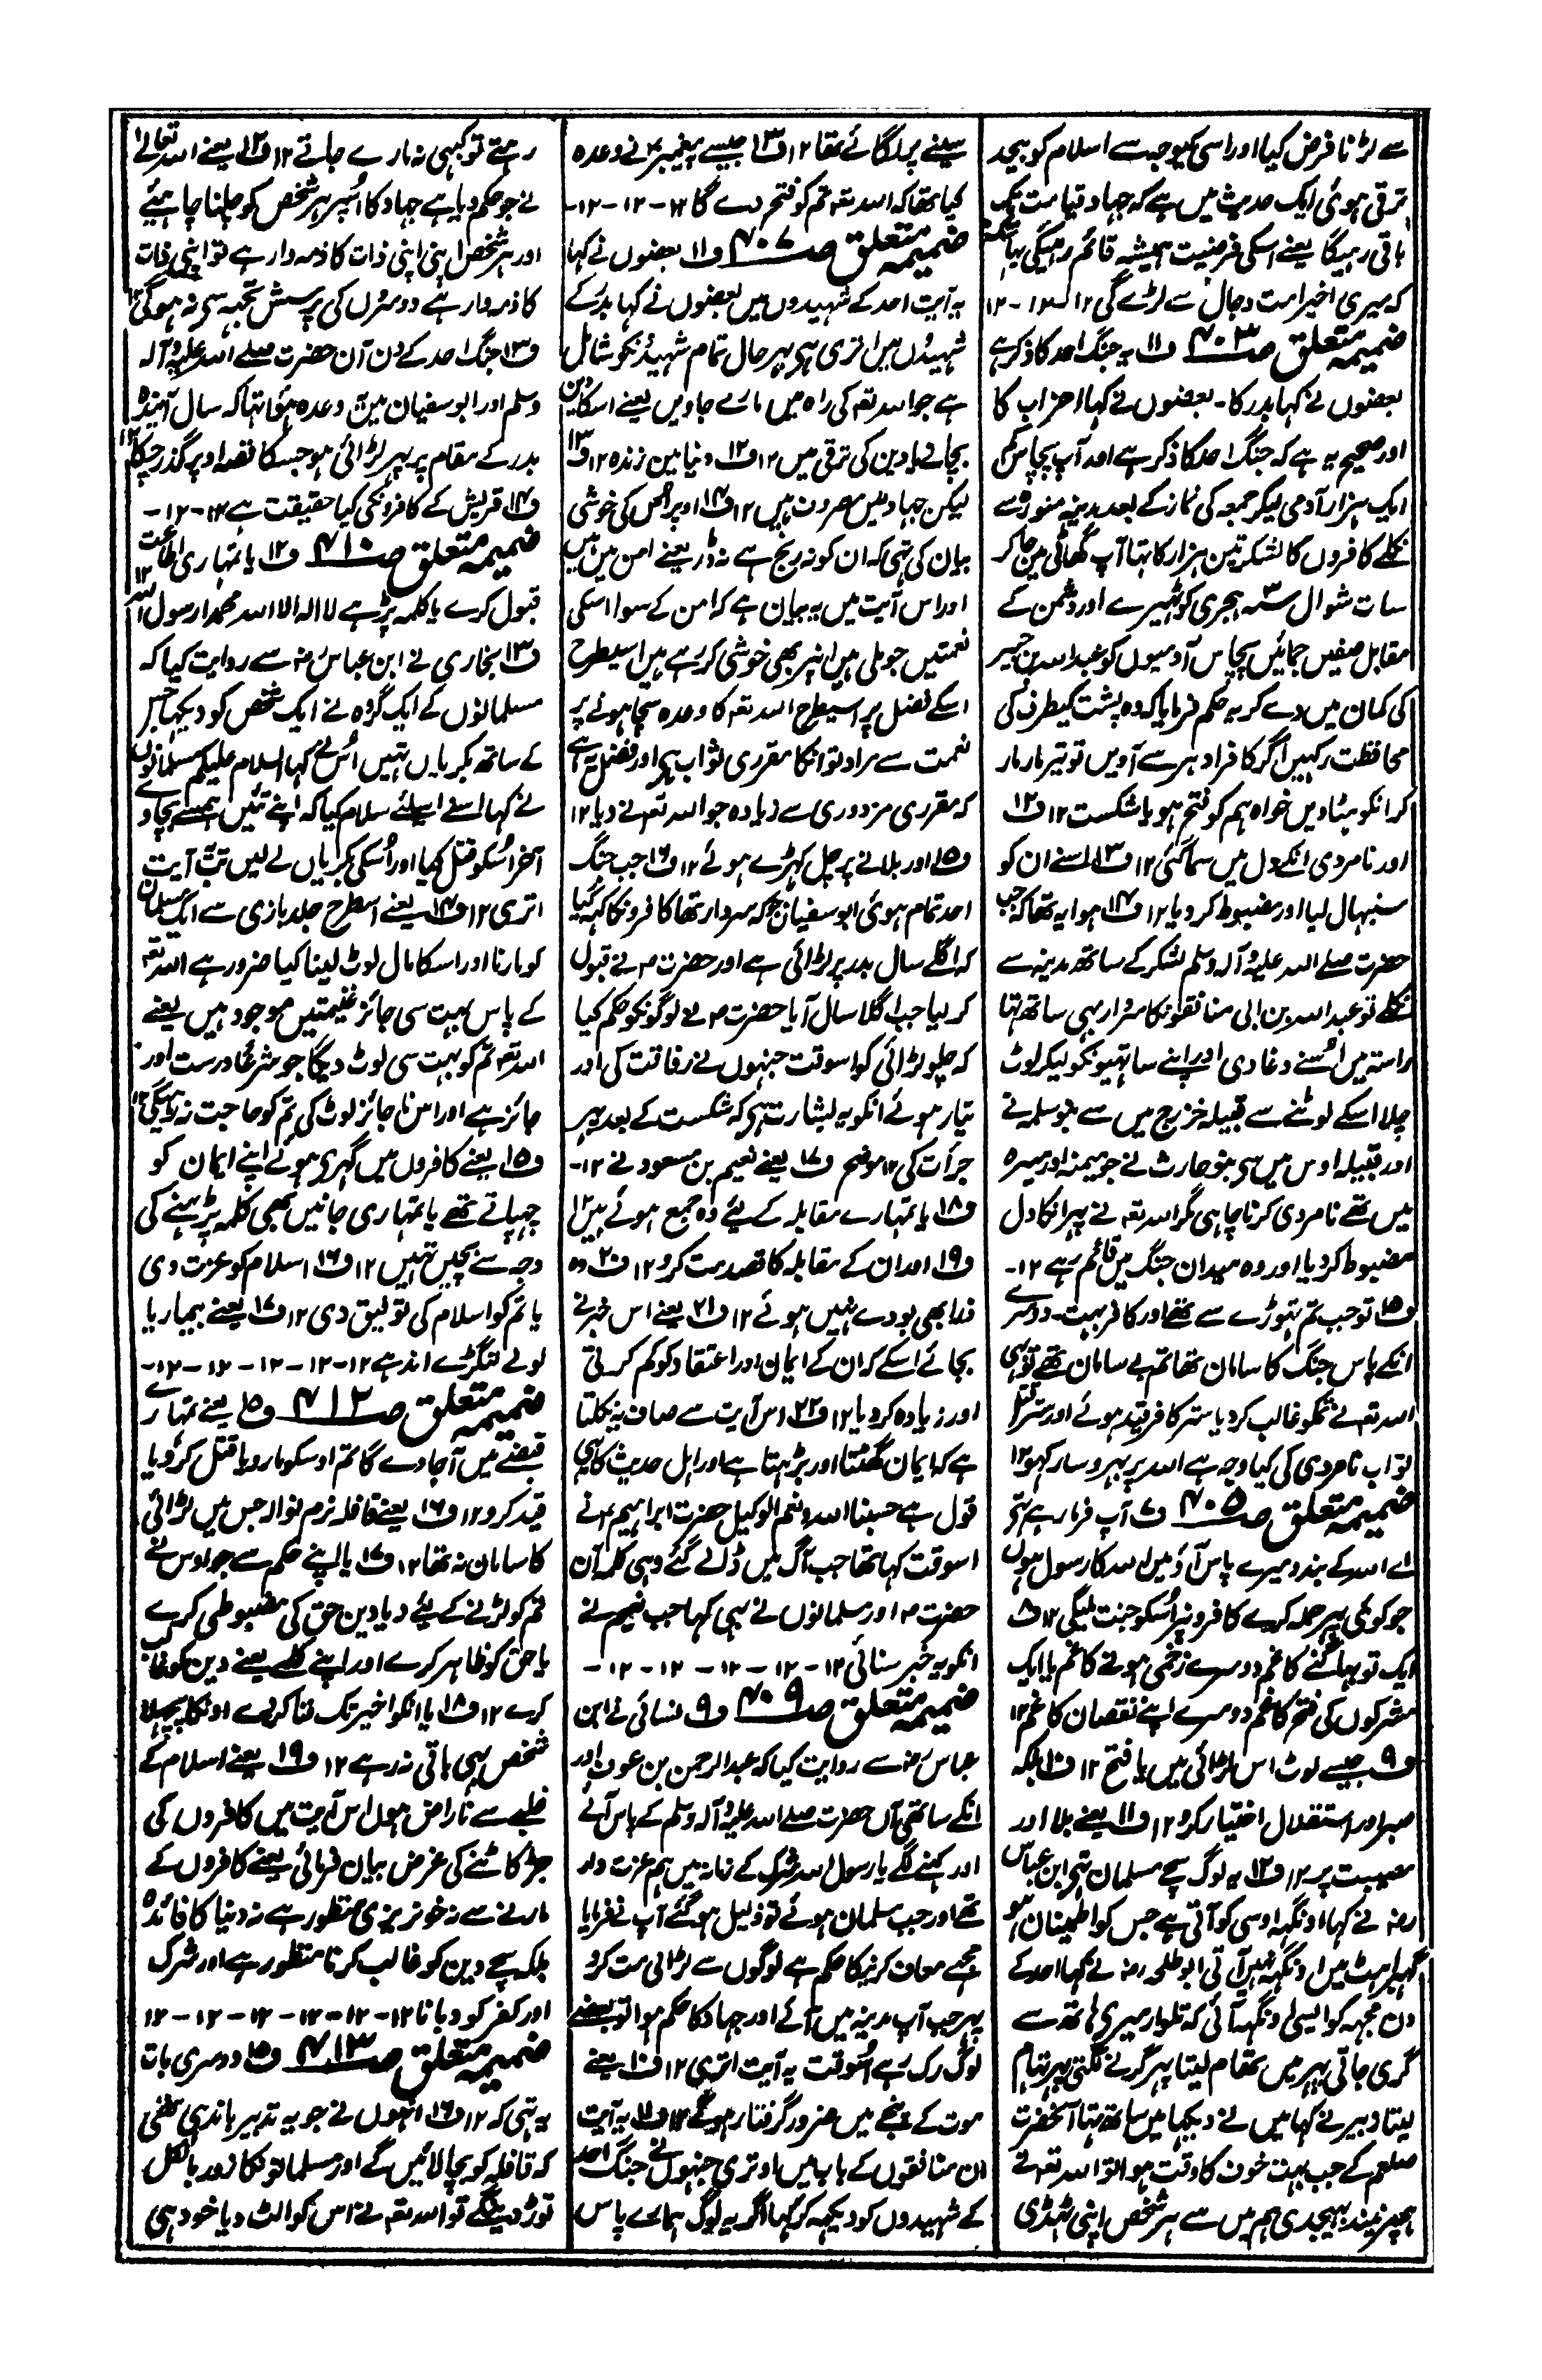 سے لڑنا فرض کیا اور اسی کیوجہ سے اسلام کو بیحد
ترقی ہوئی ایک حدیث میں ہے کہ جہاد قیامت تک
باقی رہیگا یعنے اسکی فرضیت ہمیشہ قائم رہیگی یہانتک
کہ میری اخیر امت دجال سے لڑے گی ۱۲ - ۱۲ - ۱۲
ضمیمہ متعلق صـ۷۰۳ ف۱۱ یہ جنگ احد کا ذکر ہے
بعضوں نے کہا بدر کا - بعضوں نے کہا احزاب کا
اور صحیح یہ ہے کہ جنگ احد کا ذکر ہے اور آپ پچاس کم
ایک ہزار آدمی لیکر جمعہ کی نماز کے بعد مدینہ منورہ سے
نکلے کافروں کا لشکر تین ہزار کا تہا آپ گھاٹی میں جا کر
سات شوال ۳ سنہ ہجری کو ٹہیرے اور دشمن کے
مقابل صفیں جمائیں پچاس آدمیوں کو عبداللہ بن جبیر
کی کمان میں دے کر یہ حکم فرمایا کہ وہ پشت کیطرف کی
محافظت رکہیں اگر کافر ادہر سے آویں تو تیر مار مار
کر انکو ہٹادیں خواہ ہم کو فتح ہو یا شکست ۱۲ ف۱۲
اور نامردی انکے دل میں سما گئی ۱۲ ف۱۳ اسنے ان کو
سنبہال لیا اور مضبوط کر دیا ۱۲ ف۱۴ ہوا یہ تھا کہ جب
حضرت صلے اللہ علیہ وآلہ وسلم لشکر کے ساتھ مدینہ سے
نکلے تو عبداللہ بن ابی منافقونکا سردار بہی ساتھ تہا
راستہ میں اُسنے دغا دی اور اپنے ساتہیونکو لیکر لوٹ
چلا اسکے لوٹنے سے قبیلہ خزرج میں سے بنو سلمہ نے
اور قبیلہ اوس میں سے بنو حارث نے جو میمنہ اور میسرہ
میں تھے نامردی کرنا چاہی مگر اللہ تعہ نے پہر انکا دل
مضبوط کر دیا اور وہ میدان جنگ میں قائم رہے ۱۲-
ف۱۵ تو جب تم تہوڑے سے تھے اور کافر بہت - دوسرے
انکے پاس جنگ کا سامان تھا تم بے سامان تھے تو بہی
اللہ تعہ نے تمکو غالب کر دیا ستر کافر قید ہوئے اور ستر قتل
تو اب نامردی کی کیا وجہ ہے اللہ پر بہروسا رکہو ۱۲
ضمیمہ متعلق صـ۷۰۵ ف۷ آپ فرما رہے تھے
اے اللہ کے بندو میرے پاس آؤ میں اللہ کا رسول ہوں
جو کوئی پہر حملہ کرے کافرونپر اُسکو جنت ملیگی ۱۲ ف۸
ایک تو بہاگنے کا غم دوسرے زخمی ہونے کا غم یا ایک
مشرکوں کی فتح کا غم دوسرے اپنے نقصان کا غم ۱۲
ف۹ جیسے لوٹ اس لڑائی میں یا فتح ۱۲ ف۱۰ بلکہ
صبر اور استقلال اختیار کرو ۱۲ ف۱۱ یعنے بلا اور
مصیبت پر ۱۲ ف۱۲ یہ لوگ سچے مسلمان تہے ابن عباس
رضہ نے کہا اونگہہ اوسی کو آتی ہے جس کو اطمینان ہو
گہبراہٹ میں اونگہہ نہیں آتی ابو طلحہ رضہ نے کہا احد کے
دن مجہہ کو ایسی اونگہہ آئی کہ تلوار میری ہاتھ سے
گری جاتی پہر میں تھام لیتا پہر گرنے لگتی پہر تہام
لیتا زبیر نے کہا میں نے دیکہا میں ساتھ تہا آنحضرت
صلعم کے جب بہت خون کا وقت ہوا تو اللہ تعہ نے
ہم پر نیند بہیجدی ہم میں سے ہر شخص اپنی ٹہڈی
سینے پر لگائے تھا ۱۲ ف۱۳ جیسے پیغمبر نے وعدہ
کیا تھا کہ اللہ تعہ تم کو فتح دے گا ۱۲ - ۱۲ - ۱۲-
ضمیمہ متعلق صـ۷۰۷ ف۱۱ بعضوں نے کہا
یہ آیت احد کے شہیدوں میں بعضوں نے کہا بدر کے
شہیدوں میں اتری ہے بہر حال تمام شہیدونکو شامل
ہے جو اللہ تعہ کی راہ میں مارے جاویں یعنے اسکا دین
بچانے یا دین کی ترقی میں ۱۲ ف۱۲ دنیا میں زندہ ۱۲ ف۱۳
لیکن جہاد میں مصروف ہیں ۱۲ ف۱۴ اوپر اُس کی خوشی
بیان کی تہی کہ ان کو نہ رنج ہے نہ ڈر یعنے امن میں ہیں
اور اس آیت میں یہ بیان ہے کہ امن کے سوا اسکی
نعمتیں جو ملی ہیں انپر بھی خوشی کر رہے ہیں اسیطرح
اسکے فضل پر اسیطرح اللہ تعہ کا وعدہ سچا ہونے پر
نعمت سے مراد تو انکا مقرری ثواب ہے اور فضل یہ ہے
کہ مقرری مزدوری سے زیادہ جو اللہ تعہ نے دیا ۱۲
ف۱۵ اور بلانے پر چل کہڑے ہوئے ۱۲ ف۱۶ جب جنگ
احد تمام ہوئی ابو سفیان جو کہ سردار تھا کافرونکا کہہ گیا
کہ اگلے سال بدر پر لڑائی ہے اور حضرت ؐ نے قبول
کر لیا جب اگلا سال آیا حضرت ؐ نے لوگونکو حکم کیا
کہ چلو لڑائی کو اسوقت جنہوں نے رفاقت کی اور
تیار ہوئے انکو یہ بشارت ہے کہ شکست کے بعد پہر
جرأت کی ۱۲ موضح ف۱۷ یعنے نعیم بن مسعود نے ۱۲-
ف۱۸ یا تمہارے مقابلہ کے لیئے وہ جمع ہوئے ہیں ۱۲
ف۱۹ اور ان کے مقابلہ کا قصد مت کرو ۱۲ ف۲۰ وہ
ذرا بھی بودے نہیں ہوئے ۱۲ ف۲۱ یعنے اس خبر نے
بجائے اسکے کہ ان کے ایمان اور اعتقاد کو کم کرتی
اور زیادہ کر دیا ۱۲ ف۲۲ اس آیت سے صاف یہ نکلتا
ہے کہ ایمان گھٹتا اور بڑہتا ہے اور اہل حدیث کا یہی
قول ہے حسبنا اللہ ونعم الوکیل حضرت ابراہیم ؑ نے
اسوقت کہا تھا جب آگ میں ڈالے گئے وہی کلمہ آن
حضرت ؐ اور مسلمانوں نے بہی کہا جب نعیم نے
انکو یہ خبر سنائی ۱۲ - ۱۲ - ۱۲ - ۱۲ - ۱۲ -
ضمیمہ متعلق صـ۷۰۹ ف۹ نسائی نے ابن
عباس رضہ سے روایت کیا کہ عبدالرحمن بن عوف اور
انکے ساتھی آن حضرت صلے اللہ علیہ وآلہ وسلم کے پاس آئے
اور کہنے لگے یا رسول اللہ شرک کے زمانہ میں ہم عزت دار
تھے اور جب مسلمان ہوئے تو ذلیل ہو گئے آپ نے فرمایا
مجہے معاف کرنیکا حکم ہے لوگوں سے لڑائی مت کرو
پہر جب آپ مدینہ میں آئے اور جہاد کا حکم ہوا تو بعضے
لوگ رک رہے اُسوقت یہ آیت اتری ۱۲ ف۱۰ یعنے
موت کے پنجے میں ضرور گرفتار ہوگے ۱۲ ف۱۱ یہ آیت
ان منافقوں کے باب میں اوتری جنہوں نے جنگ احد
کے شہیدوں کو دیکہہ کر کہا اگر یہ لوگ ہمارے پاس
رہتے تو کبہی نہ مارے جاتے ۱۲ ف۱۲ یعنے اللہ تعالے
نے جو حکم دیا ہے جہاد کا اُسپر ہر شخص کو چلنا چاہیئے
اور ہر شخص اپنی اپنی ذات کا ذمہ دار ہے تو اپنی ذات
کا ذمہ دار ہے دوسروں کی پرسش تجہہ سے نہ ہوگی ۱۲
ف۱۳ جنگ احد کے دن آن حضرت صلے اللہ علیہ وآلہ
وسلم اور ابو سفیان میں یہ وعدہ ہوا تہا کہ سال آیندہ
بدر کے مقام پر پہر لڑائی ہو جسکا قصہ اوپر گذر چکا ۱۲
ف۱۴ قریش کے کافرونکی کیا حقیقت ہے ۱۲ - ۱۲ -
ضمیمہ متعلق صـ۷۱۰ ف۱۲ یا تمہاری اطاعت
قبول کرے یا کلمہ پڑہے لا الہ الا اللہ محمد رسول اللہ ۱۲
ف۱۳ بخاری نے ابن عباس رضہ سے روایت کیا کہ
مسلمانوں کے ایک گروہ نے ایک شخص کو دیکہا جس
کے ساتھ بکریاں تہیں اُس نے کہا السلام علیکم مسلمانوں
نے کہا اسنے اسلئے سلام کیا کہ اپنے تئیں ہمسے بچاوے
آخر اُسکو قتل کیا اور اُسکی بکریاں لے لیں تب یہ آیت
اتری ۱۲ ف۱۴ یعنے اسطرح جلد بازی سے ایک مسلمان
کو مارنا اور اسکا مال لوٹ لینا کیا ضرور ہے اللہ تعہ
کے پاس بہت سی جائز غنیمتیں موجود ہیں یعنے
اللہ تعہ تم کو بہت سی لوٹ دیگا جو شرعًا درست اور
جائز ہے اور اس ناجائز لوٹ کی تم کو حاجت نہ رہیگی ۱۲
ف۱۵ یعنے کافروں میں گہرے ہوئے اپنے ایمان کو
چہپاتے تھے یا تمہاری جانیں بھی کلمہ پڑہنے کی
وجہ سے بچیں تہیں ۱۲ ف۱۶ اسلام کو عزت دی
یا تم کو اسلام کی توفیق دی ۱۲ ف۱۷ یعنے بیمار یا
لولے لنگڑے اندہے ۱۲ - ۱۲ - ۱۲ - ۱۲ - ۱۲-
ضمیمہ متعلق صـ۷۱۲ ف۱۵ یعنے تمہارے
قبضے میں آجاوے گا تم اوسکو مارو یا قتل کرو یا
قید کرو ۱۲ ف۱۶ یعنے قافلہ نرم نوالہ جس میں لڑائی
کا سامان نہ تھا ۱۲ ف۱۷ یا اپنے حکم سے جو اوس نے
تم کو لڑنے کے لیئے دیا دین حق کی مضبوطی کرے
یا حق کو ظاہر کرے اور اپنے کلمے یعنے دین کو غالب
کرے ۱۲ ف۱۸ یا انکو اخیر تک فنا کرے اونکا پچہلا
شخص بہی باقی نہ رہے ۱۲ ف۱۹ یعنے اسلام کے
غلبے سے ناراض ہوں اس آیت میں کافروں کی
جڑ کاٹنے کی غرض بیان فرمائی یعنے کافروں کے
مارنے سے نہ خونریزی منظور ہے نہ دنیا کا فائدہ
بلکہ سچے دین کو غالب کرنا منظور ہے اور شرک
اور کفر کو دبانا ۱۲ - ۱۲ - ۱۲ - ۱۲ - ۱۲ - ۱۲
ضمیمہ متعلق صـ۷۱۳ ف۱۵ دوسری بات
یہ تہی کہ ۱۲ ف۱۶ انہوں نے جو یہ تدبیر باندہی تھی
کہ قافلہ کو بچا لائیں گے اور مسلمانونکا زور بالکل
توڑ دینگے تو اللہ تعہ نے اس کو الٹ دیا خود ہی